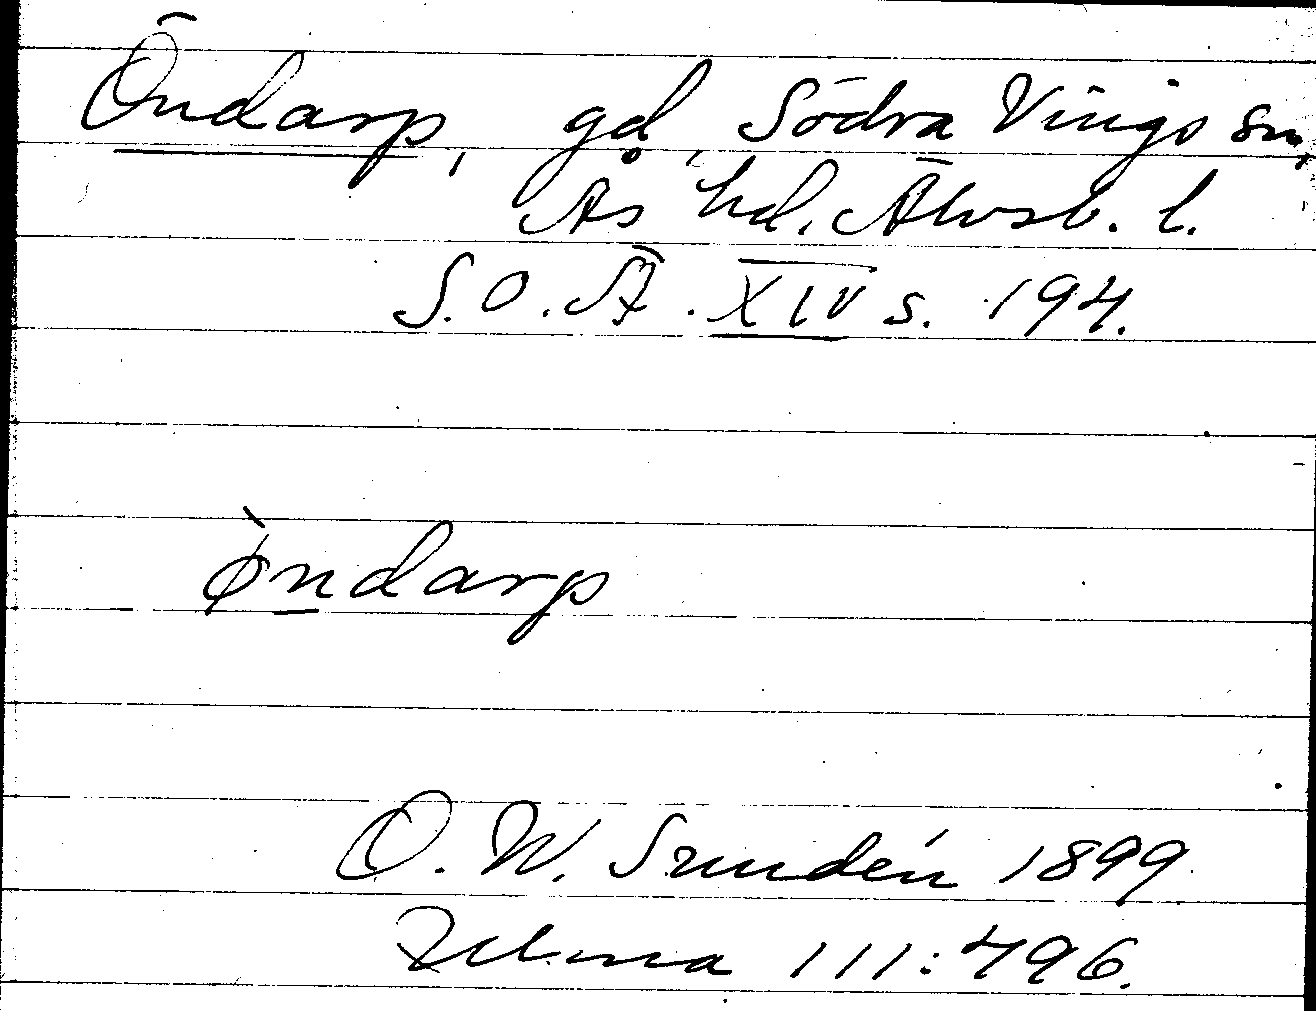 Öndarp, gd, Södra Vings sn,
Ås hd. Älvsb. l.
S.O.Ä. XIV s. 194.
Ø̀ndarp
O. W. Sundén 1899
Ulma 111:496.